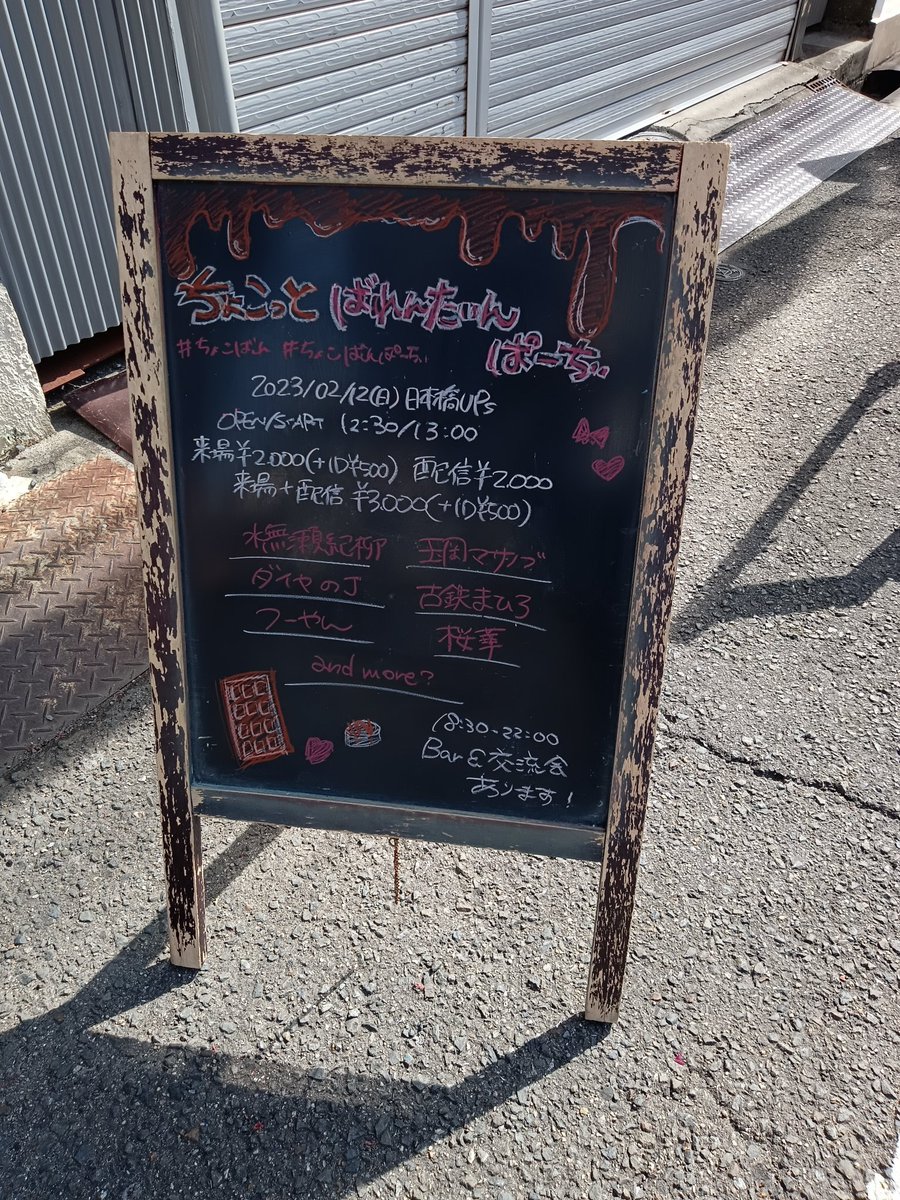 ちょこっと ばれんたいん
ぱーちぃ
#ちょこばん #ちょこばんぱーちぃ
2023/02/12(日) 日本橋UPs
OPEN/START 12:30/13:00
来場¥2.000(+1D¥500) 配信¥2.000
来場+配信 ¥3.000(+1D¥500)
無頼紀柳 玉岡マサノブ
ダイヤのJ 古鉄まひろ
フーやん 桜華
and more?
18:30-22:00
Bar&交流会
あります!